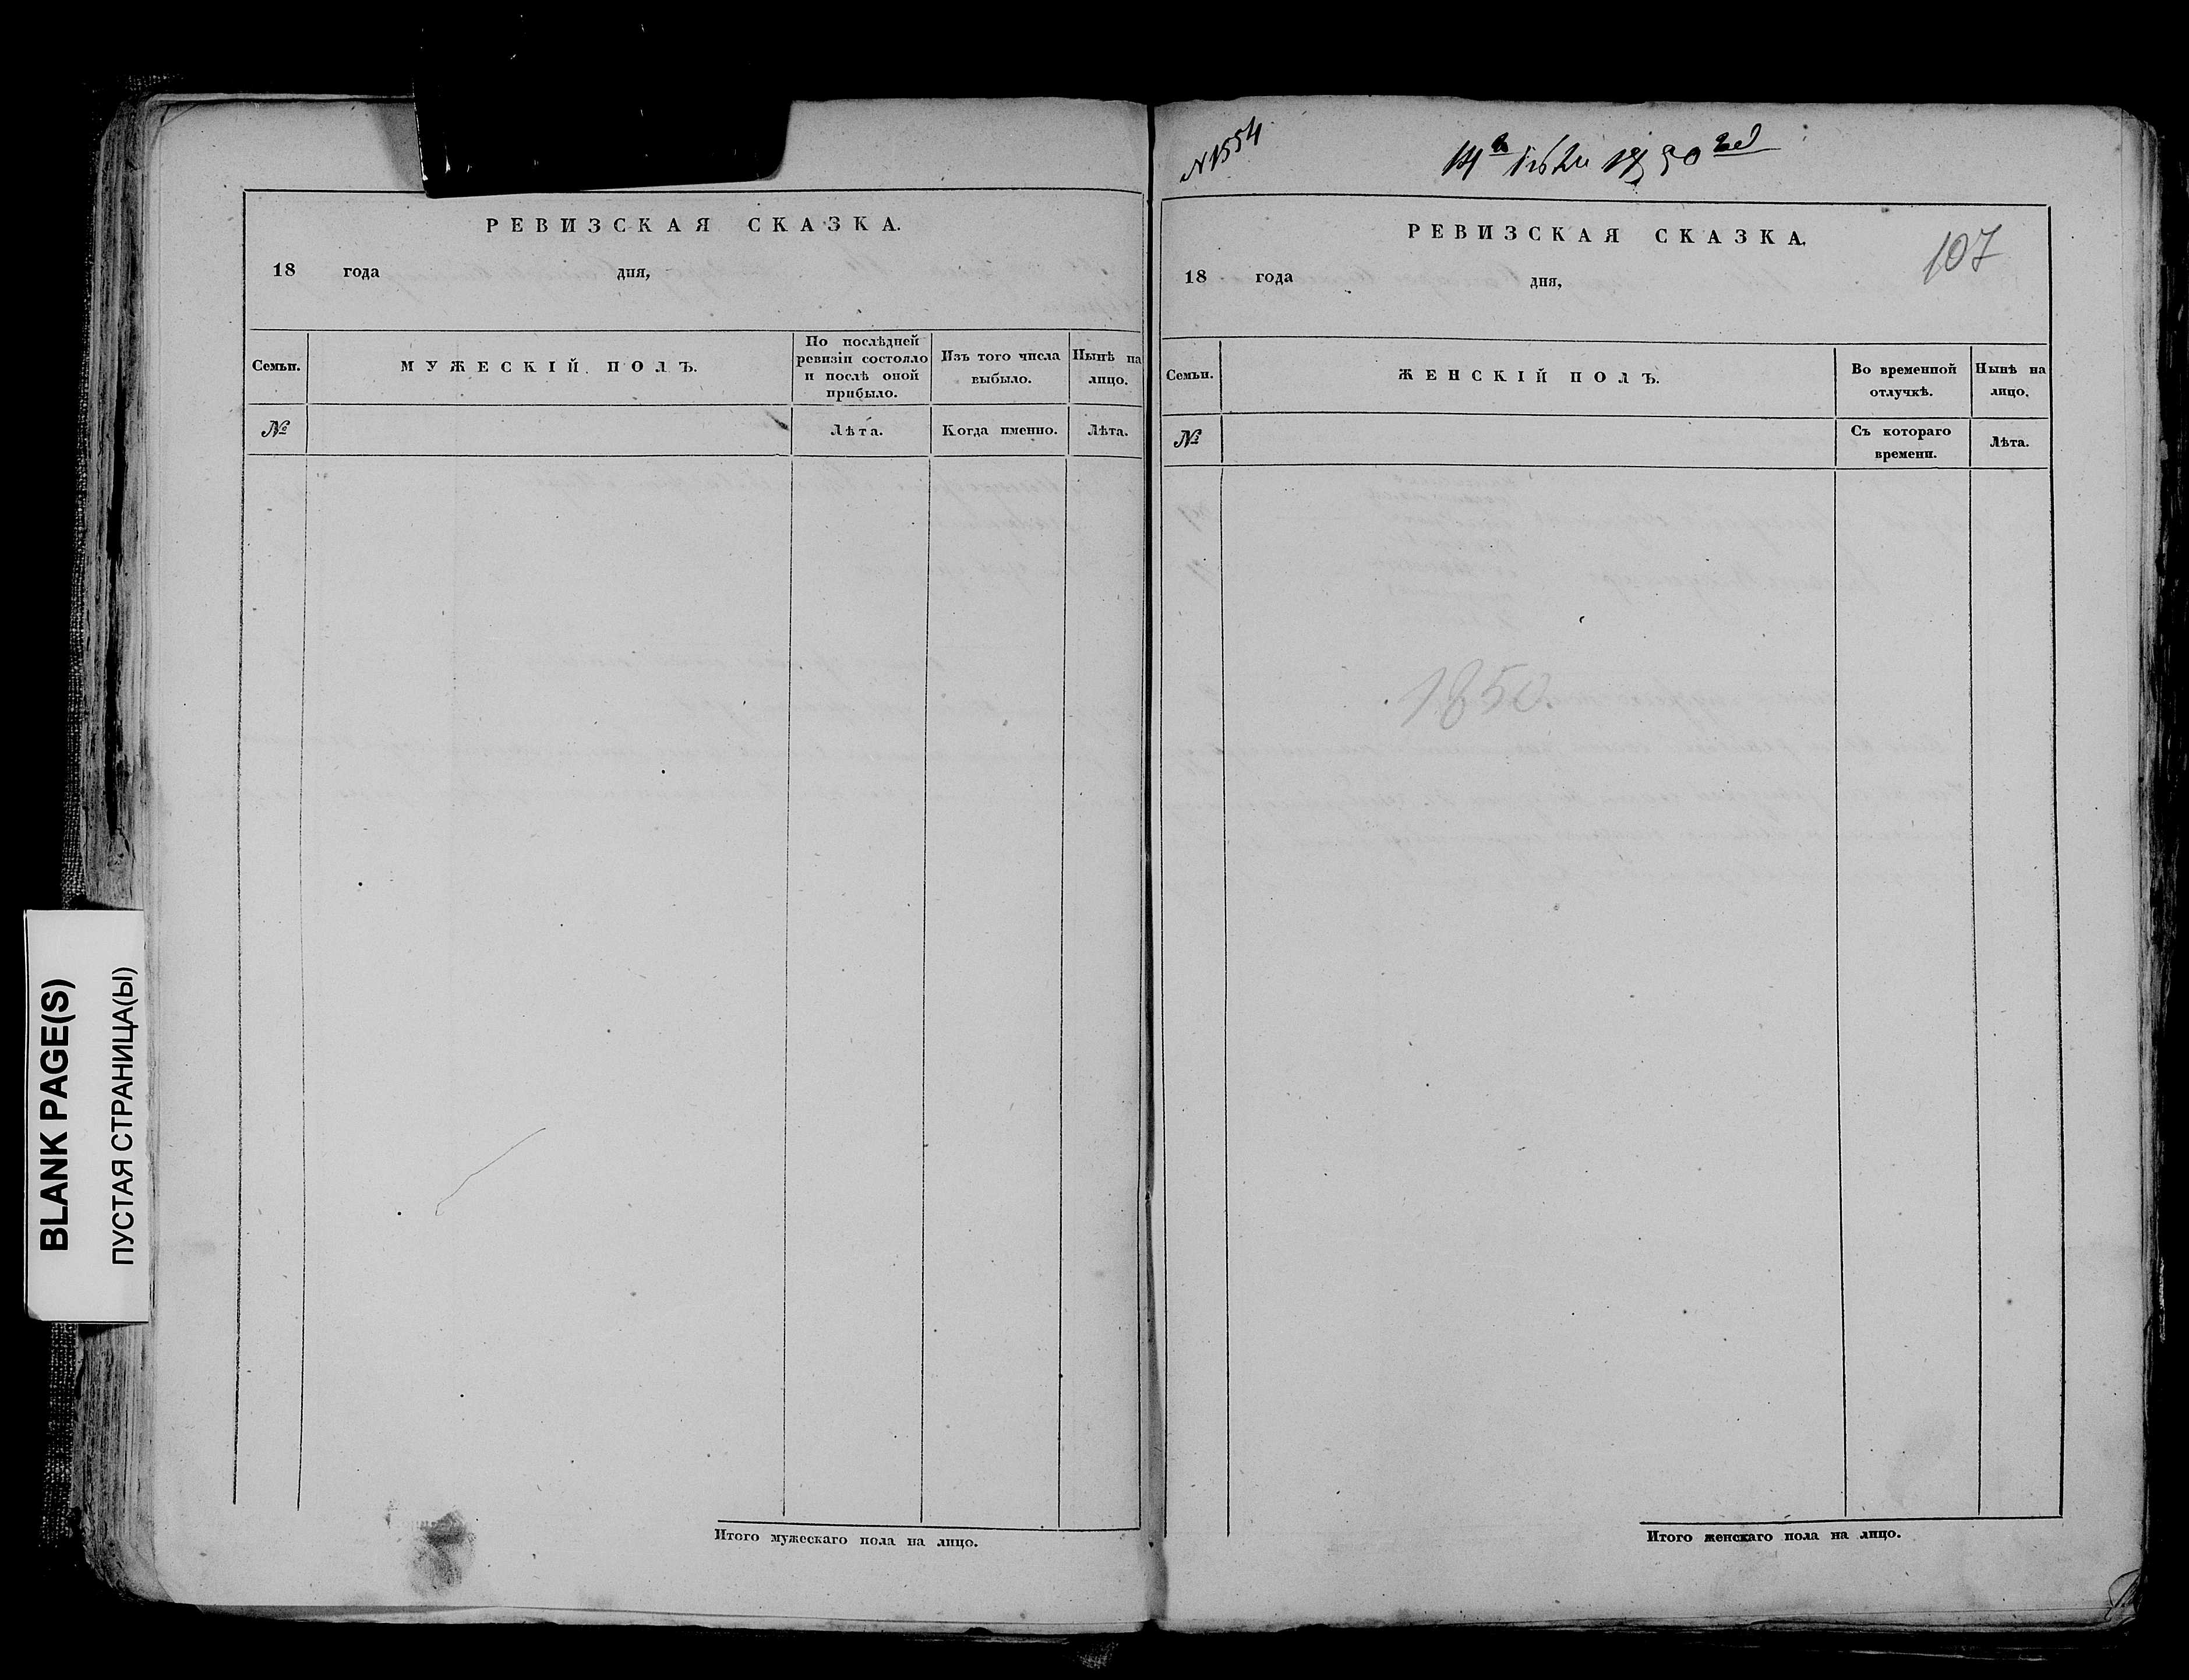 РЕВИЗСКАЯ СКАЗКА.
18 года дня,
Семьи. МУЖЕСКІЙ ПОЛЪ. По послѣдней ревизіи состояло и послѣ оной прибыло. Изъ того числа выбыло. Нынѣ на лицо.
№ Лѣта. Когда именно. Лѣта.
Итого мужескаго пола на лицо.
BLANK PAGE(S)
ПУСТАЯ СТРАНИЦА(Ы)
N 1554
РЕВИЗСКАЯ СКАЗКА.
107
18 года дня,
Семьи. ЖЕНСКІЙ ПОЛЪ. Во временной отлучкѣ. Нынѣ на лицо.
№ Съ котораго времени. Лѣта.
1850.
Итого женскаго пола на лицо.